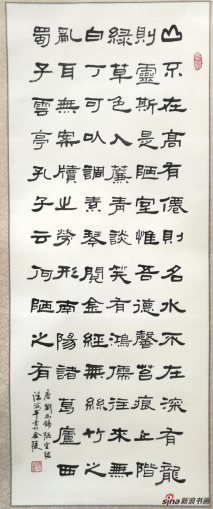 山不在高有僊則名水不在深有龍
則靈斯是陋室惟吾德馨苔痕上階
綠草色入簾青談笑有鴻儒往來無
白丁可以調素琴閱金經無絲竹之
亂耳無案牘之勞形南陽諸葛廬西
蜀子雲亭孔子云何陋之有
唐劉禹錫陋室銘
書於金陵
sina新浪书画